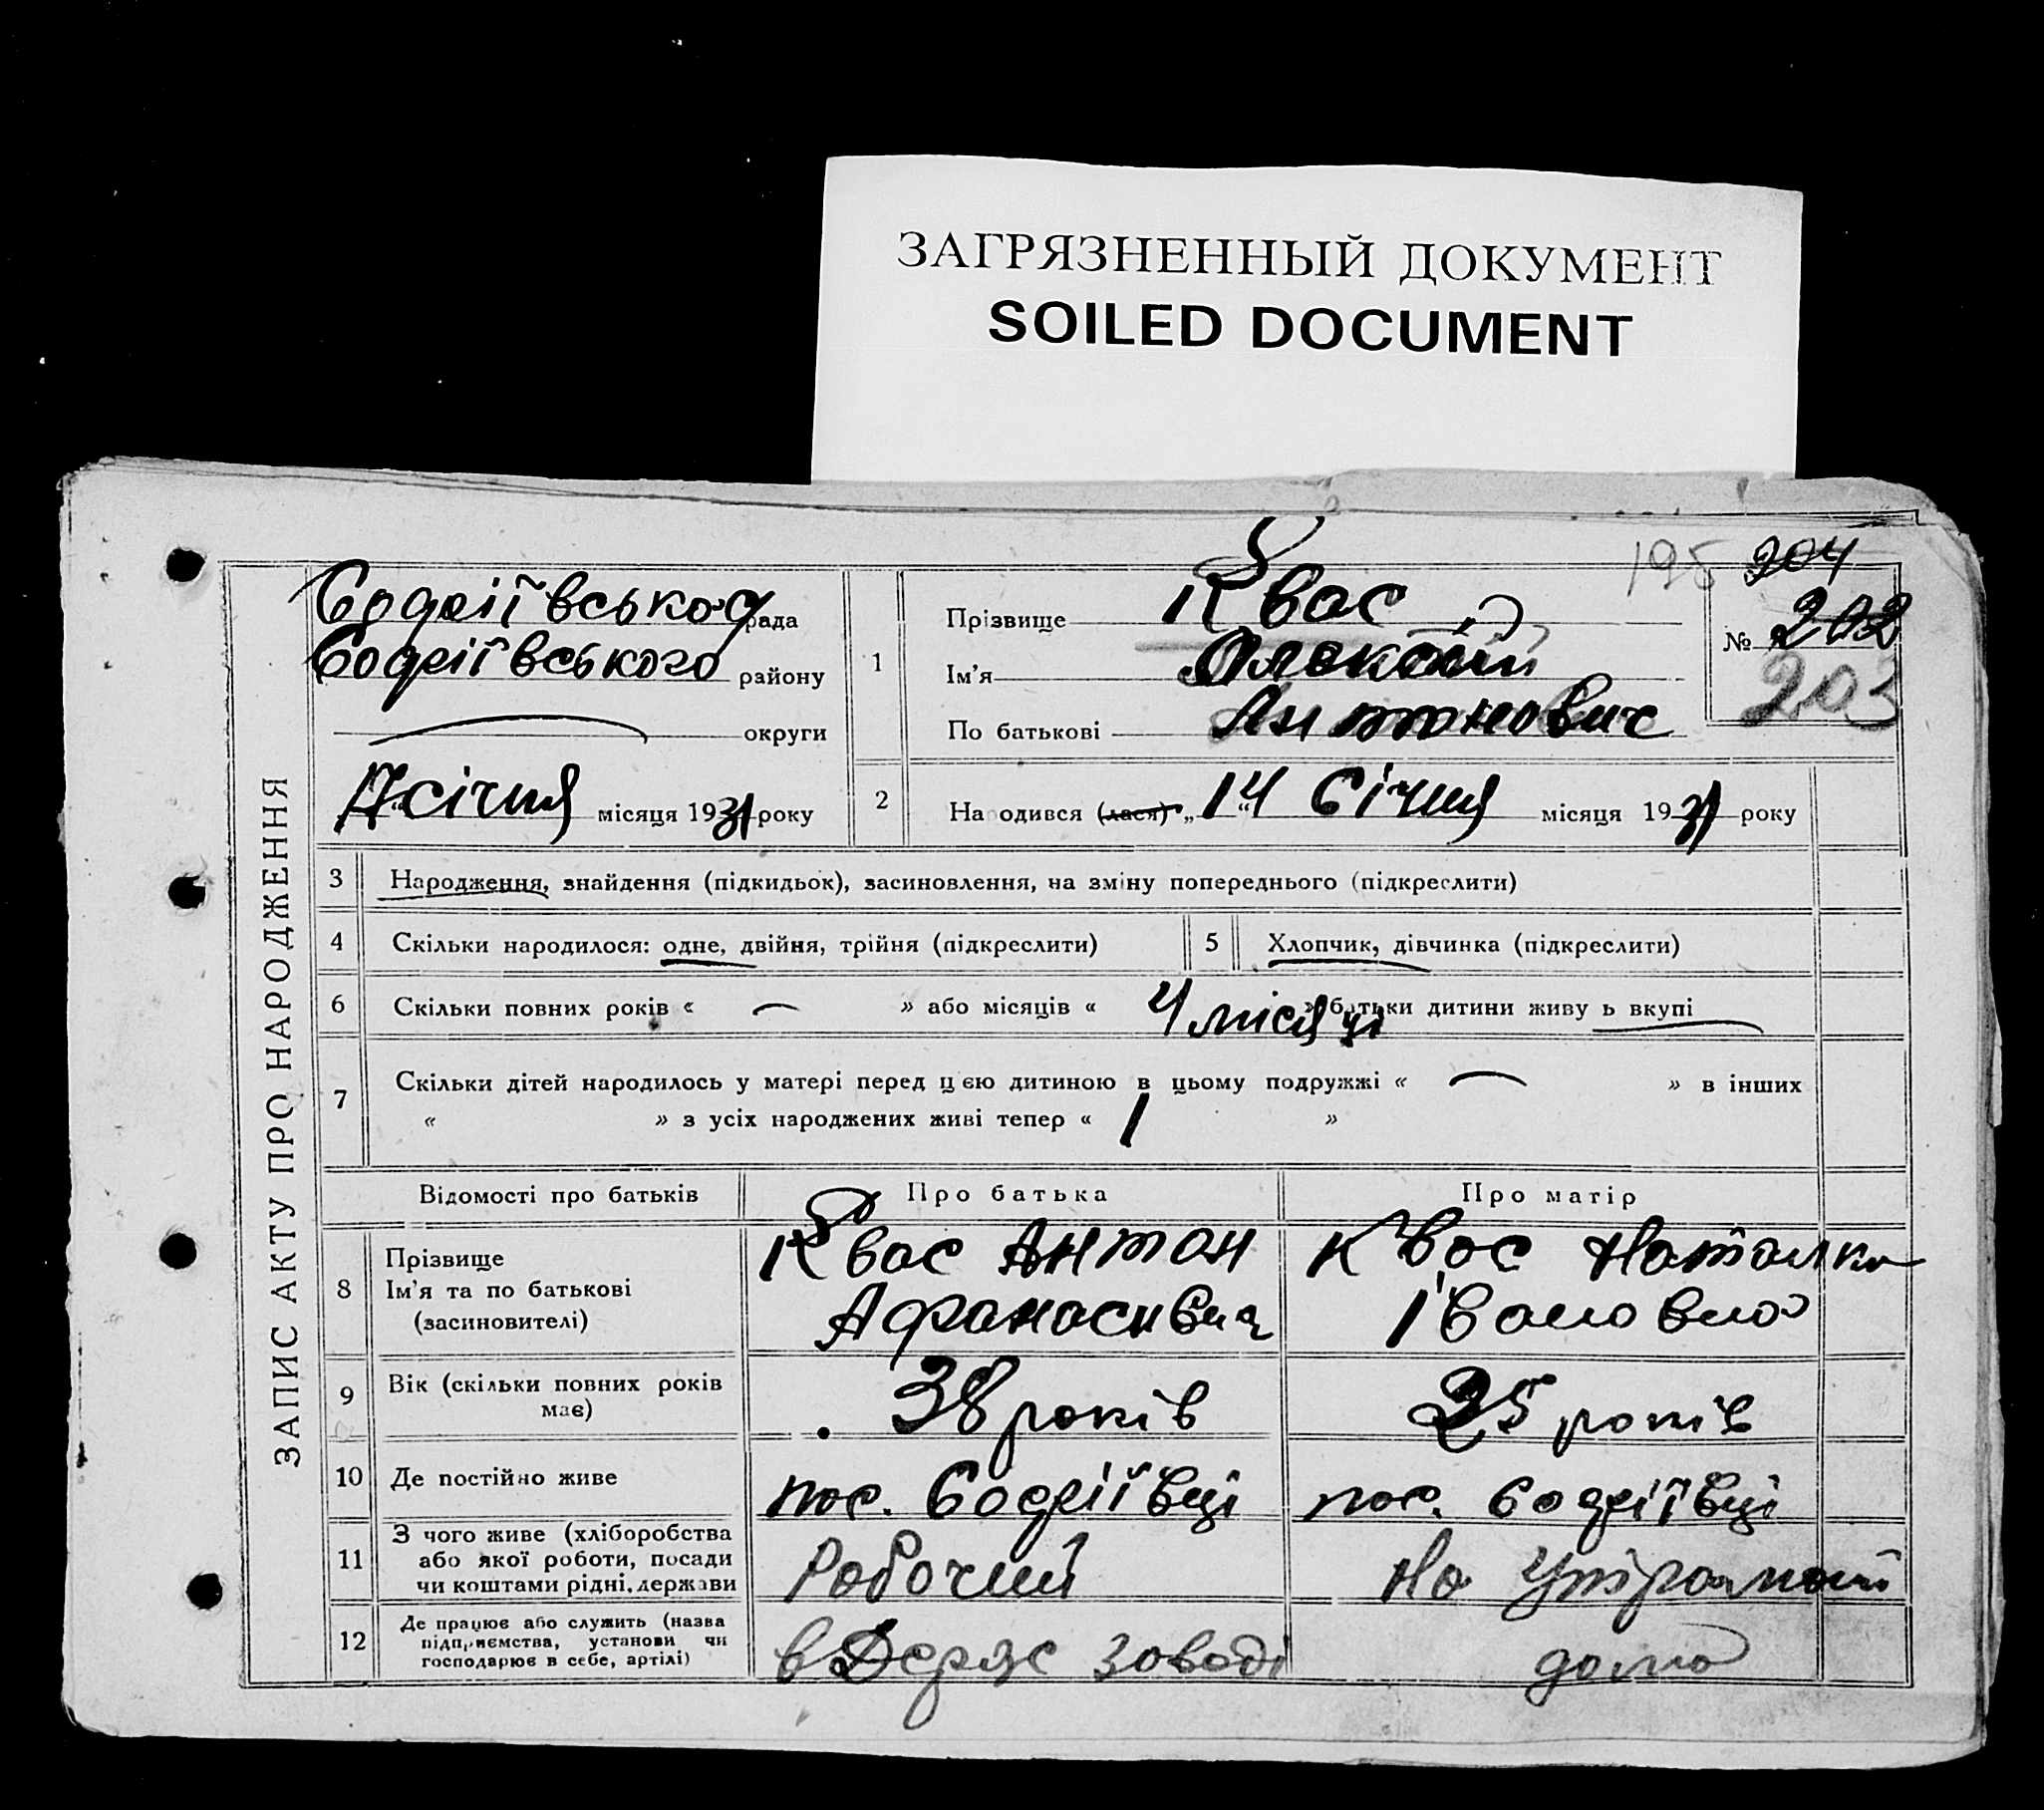 ЗАГРЯЗНЕННЫЙ ДОКУМЕНТ
SOILED DOCUMENT
ЗАПИС АКТУ ПРО НАРОДЖЕННЯ
рада
району
округи
17 січня місяця 1931 року
195 204
№ 202
203
1 Прізвище Квас
Ім'я Олексій
По батькові Антонович
2 Народився (лася) „14“ Січня місяця 1931 року
3 Народження, знайдення (підкидьок), засиновлення, на зміну попереднього (підкреслити)
4 Скільки народилося: одне, двійня, трійня (підкреслити)
5 Хлопчик, дівчинка (підкреслити)
6 Скільки повних років « — » або місяців « 4 місяці » батьки дитини живуть вкупі
7 Скільки дітей народилось у матері перед цією дитиною в цьому подружжі « — » в інших
« » з усіх народжених живі тепер « 1 »
Відомості про батьків Про батька Про матір
8 Прізвище
Ім'я та по батькові
(засиновителі)
Квас Антон
Афанасивич
Квас Наталка
Івановна
9 Вік (скільки повних років
має)
38 років
25 років
10 Де постійно живе
пос.
пос.
11 З чого живе (хліборобства
або якої роботи, посади
чи коштами рідні, держави
Робочий
На
12 Де працює або служить (назва
підприємства, установи чи
господарює в себе, артілі)
в Держ заводі
дома